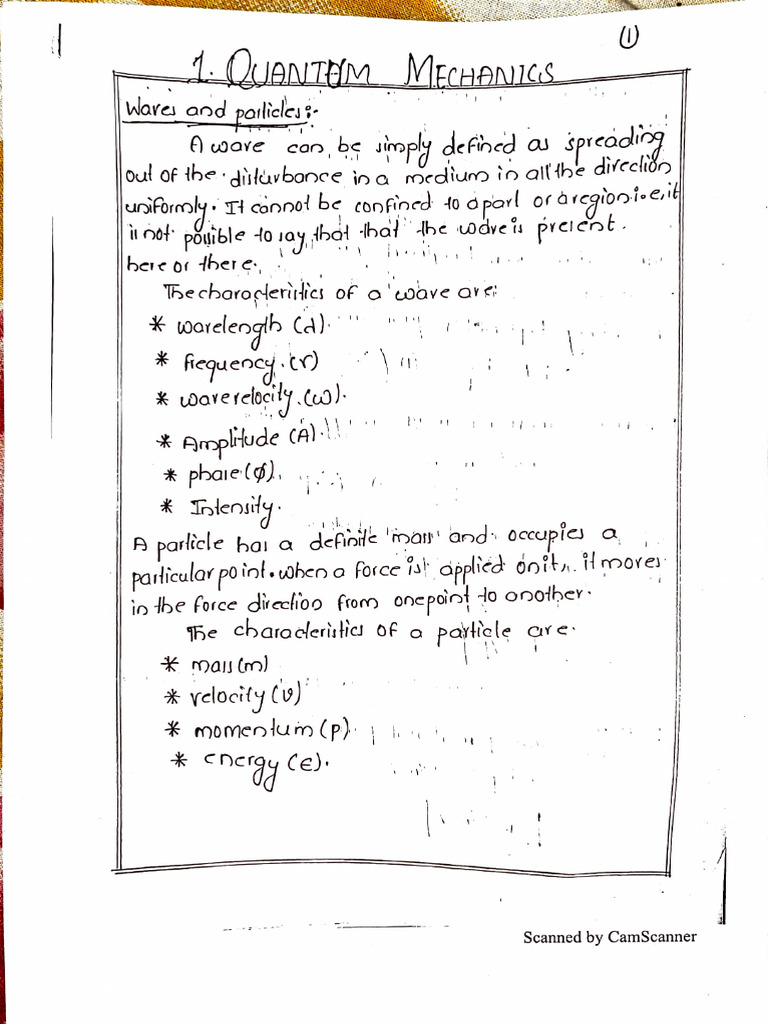 ①
1. QUANTUM MECHANICS
Waves and particles:-
A wave can be simply defined as spreading
out of the disturbance in a medium in all the direction
uniformly. It cannot be confined to a part or a region i.e, it
is not possible to say that that the wave is present
here or there.
The characteristics of a wave are:
* wavelength (d)
* frequency (r)
* wave velocity (ω).
* Amplitude (A)
* phase (φ).
* Intensity.
A particle has a definite 'mass' and occupies a
particular point. when a force is applied on it, it moves
in the force direction from one point to another.
The characteristics of a particle are.
* mass (m)
* velocity (v)
* momentum (p)
* energy (e).
Scanned by CamScanner